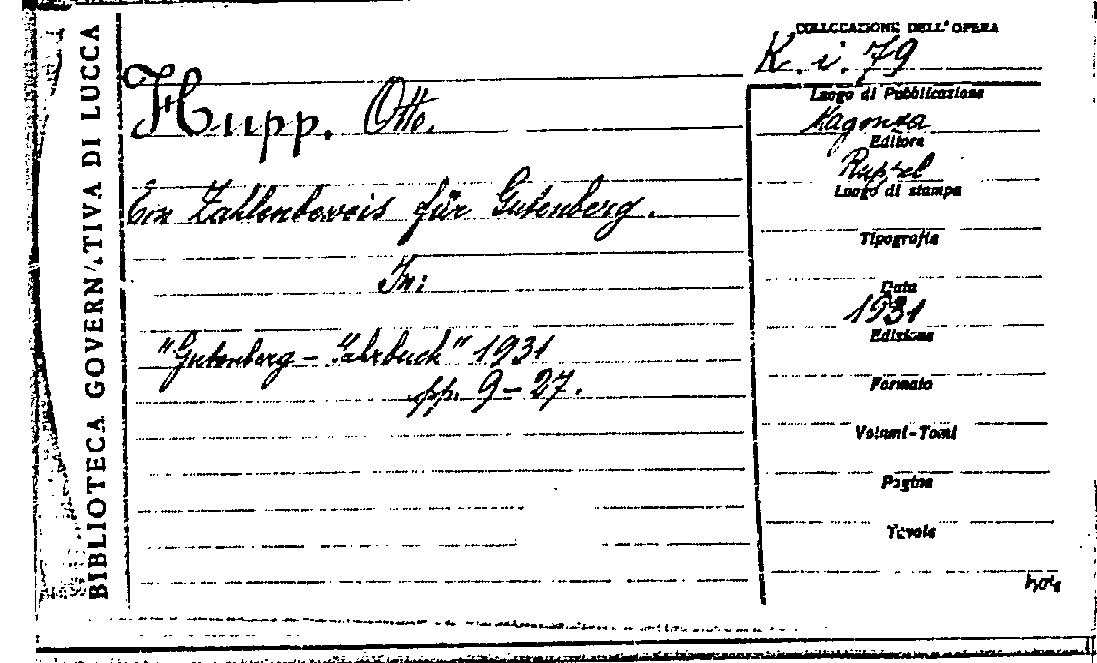 BIBLIOTECA GOVERNATIVA DI LUCCA
COLLOCAZIONE DELL'OPERA
K. i. 79
Hupp. Otto.
Ein Zahlenbeweis für Gutenberg.
In:
"Gutenberg - Jahrbuch" 1931
pp. 9-27.
Luogo di Pubblicazione
Magonza
Editore
Ruppel
Luogo di stampa
Tipografia
Data
1931
Edizione
Formato
Volumi-Tomi
Pagine
Tavole